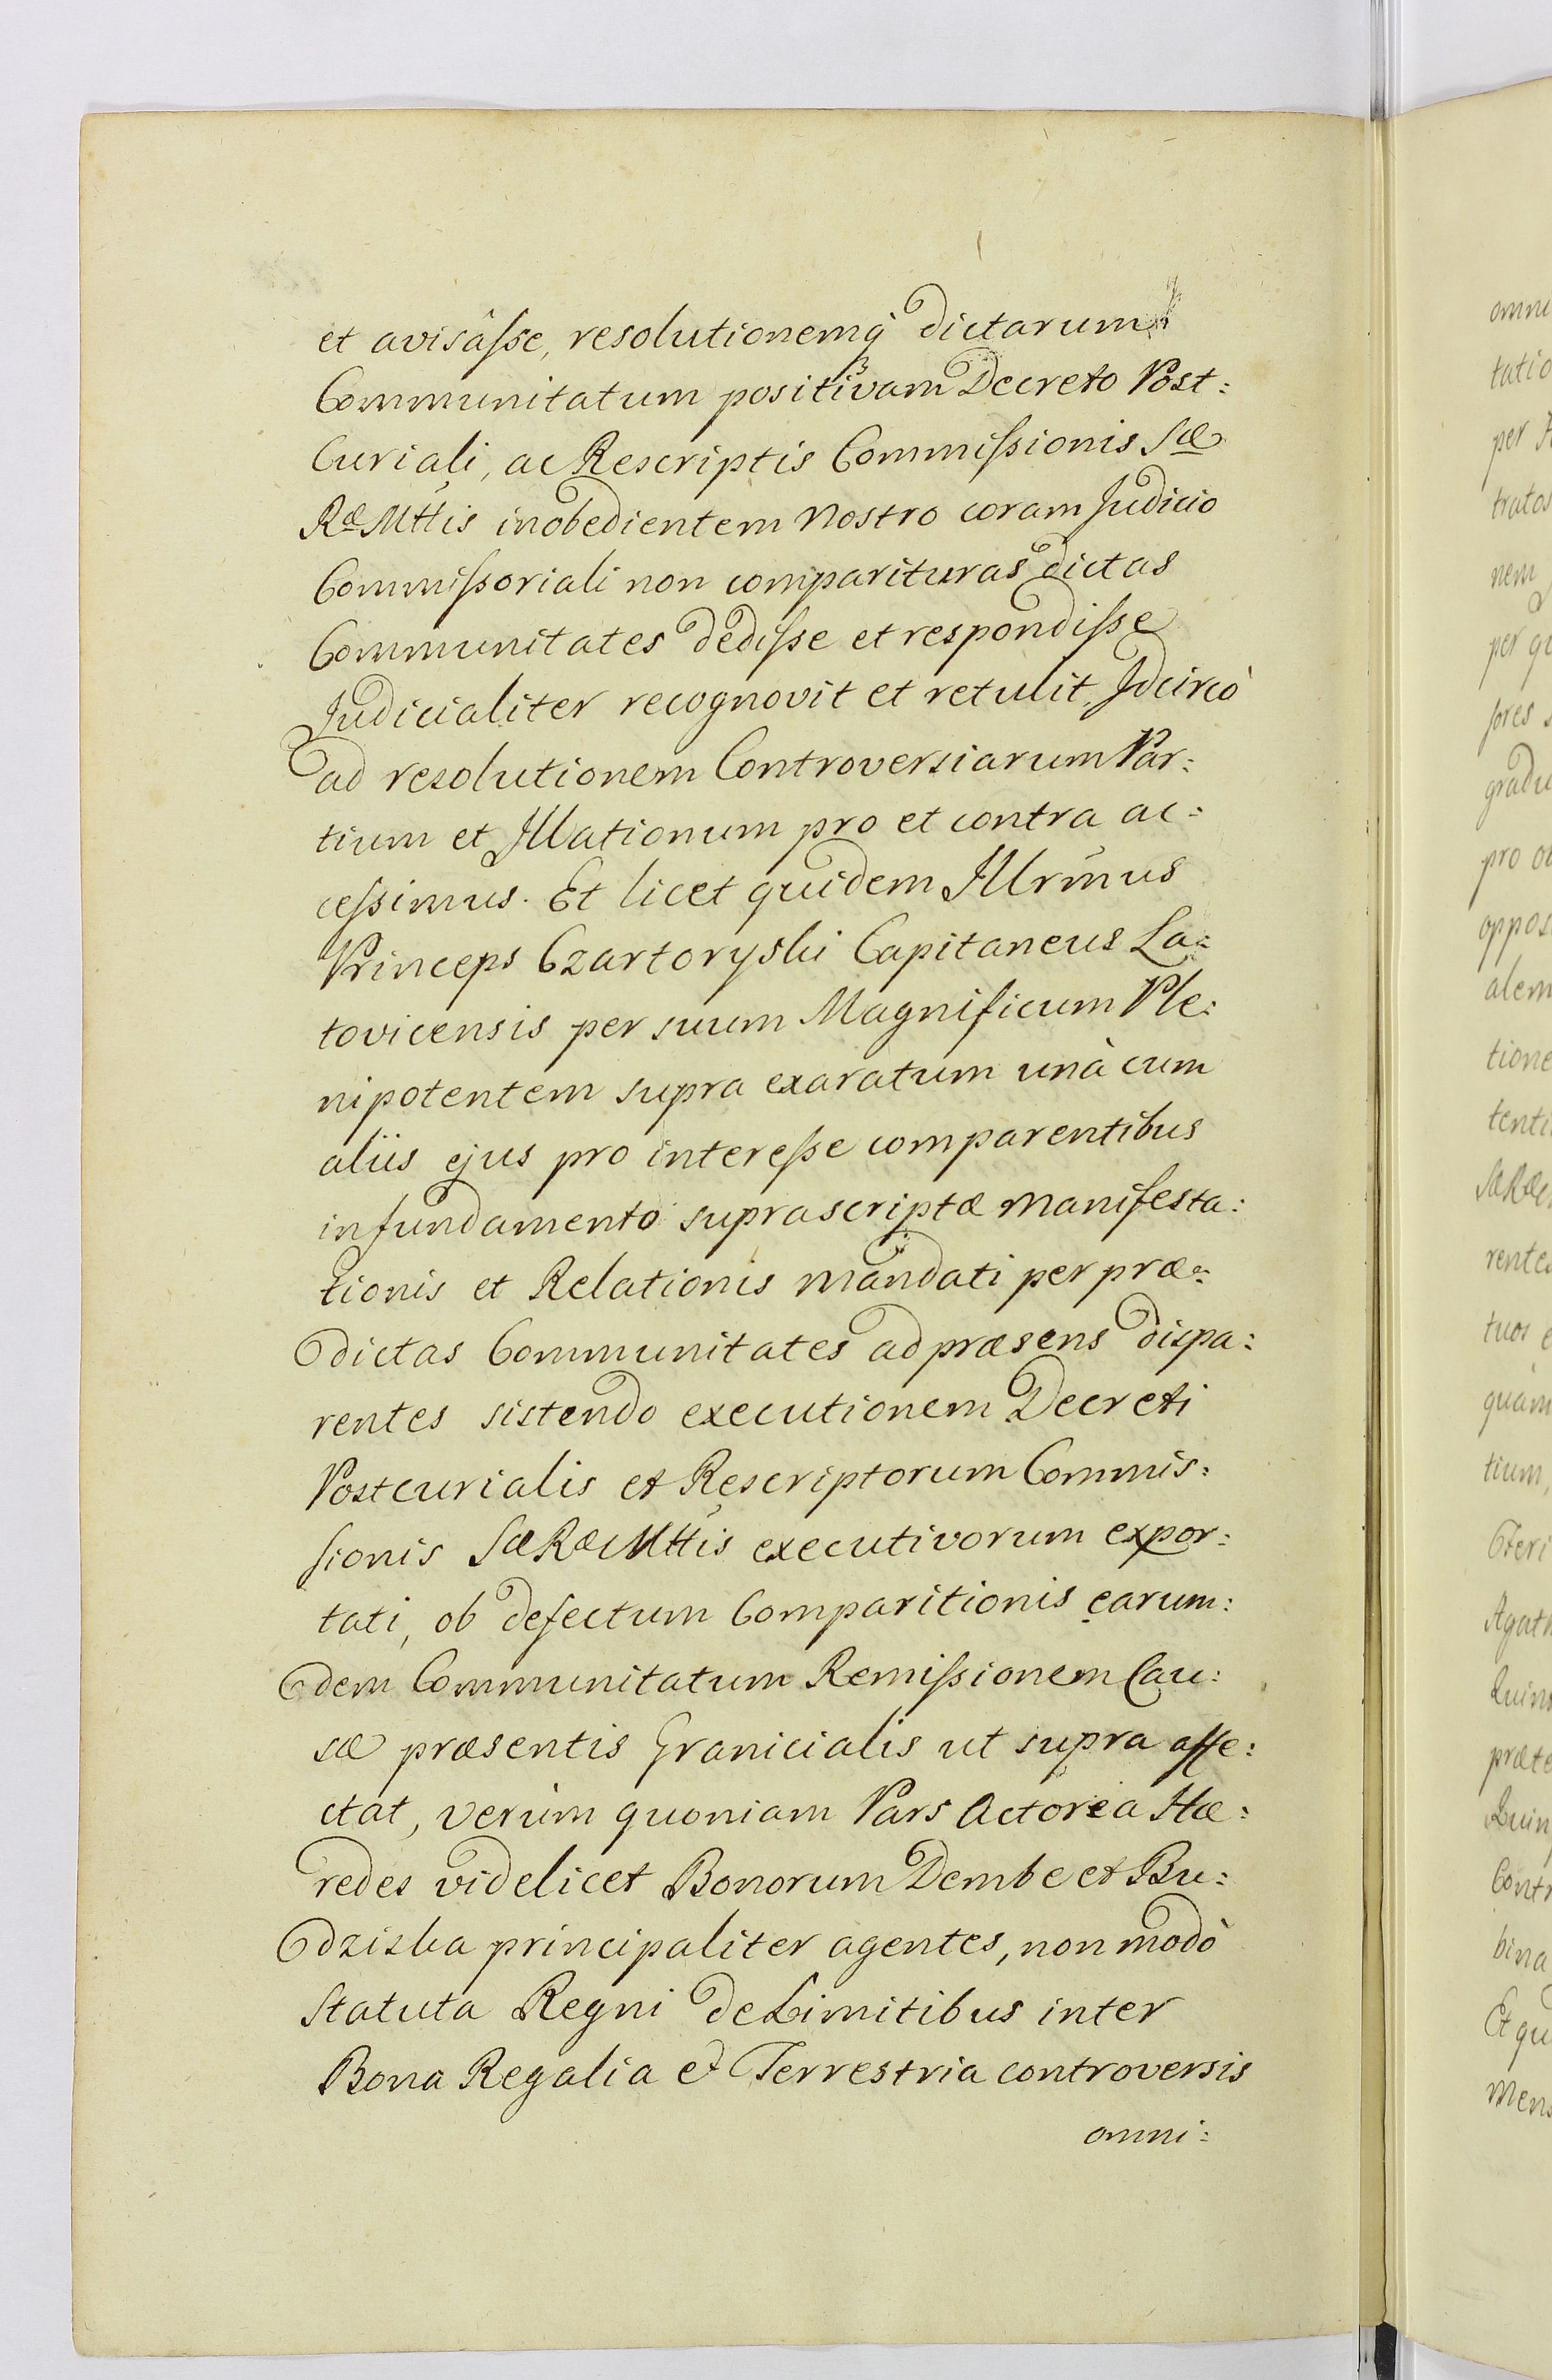 et avisâsse, resolutionemq́ dictarum
Communitatum positivam Decreto Post:
Curiali, ac Rescriptis Commissionis Sæ
Ræ Mttis inobedientem nostro coram Judicio
Commissoriali non comparituras dictas
Communitates dedisse et respondisse
Judicialiter recognovit et retulit. Idcircò
ad resolutionem Controversiarum Par:
tium et Illationum pro et contra ac:
cessimus. Et licet quidem Illrmus
Princeps Czartoryski Capitaneus La:
tovicensis per suum Magnificum Ple:
nipotentem supra exaratum unà cum
aliis ejus pro interesse comparentibus
in fundamento suprascriptæ manifesta:
tionis et Relationis mandati per præ:
dictas Communitates ad præsens dispa:
rentes sistendo executionem Decreti
Postcurialis et Rescriptorum Commis:
sionis Sæ Ræ Mttis executivorum expor:
tati, ob defectum Comparitionis earum:
dem Communitatum Remissionem Cau:
sæ præsentis Granicialis ut supra affe:
ctat, verùm quoniam Pars Actorea Hæ:
redes videlicet Bonorum Dembe et Bu:
dziska principaliter agentes, non modò
Statuta Regni de Limitibus inter
Bona Regalia et Terrestria controversis
omni:
omni
tatio
per
tratos
nem
per
gradu
pro
oppos
alem
tione
tenti
rentes
tuos
quam
tium,
Agath
præte
Contr
bina
Et qu
mens